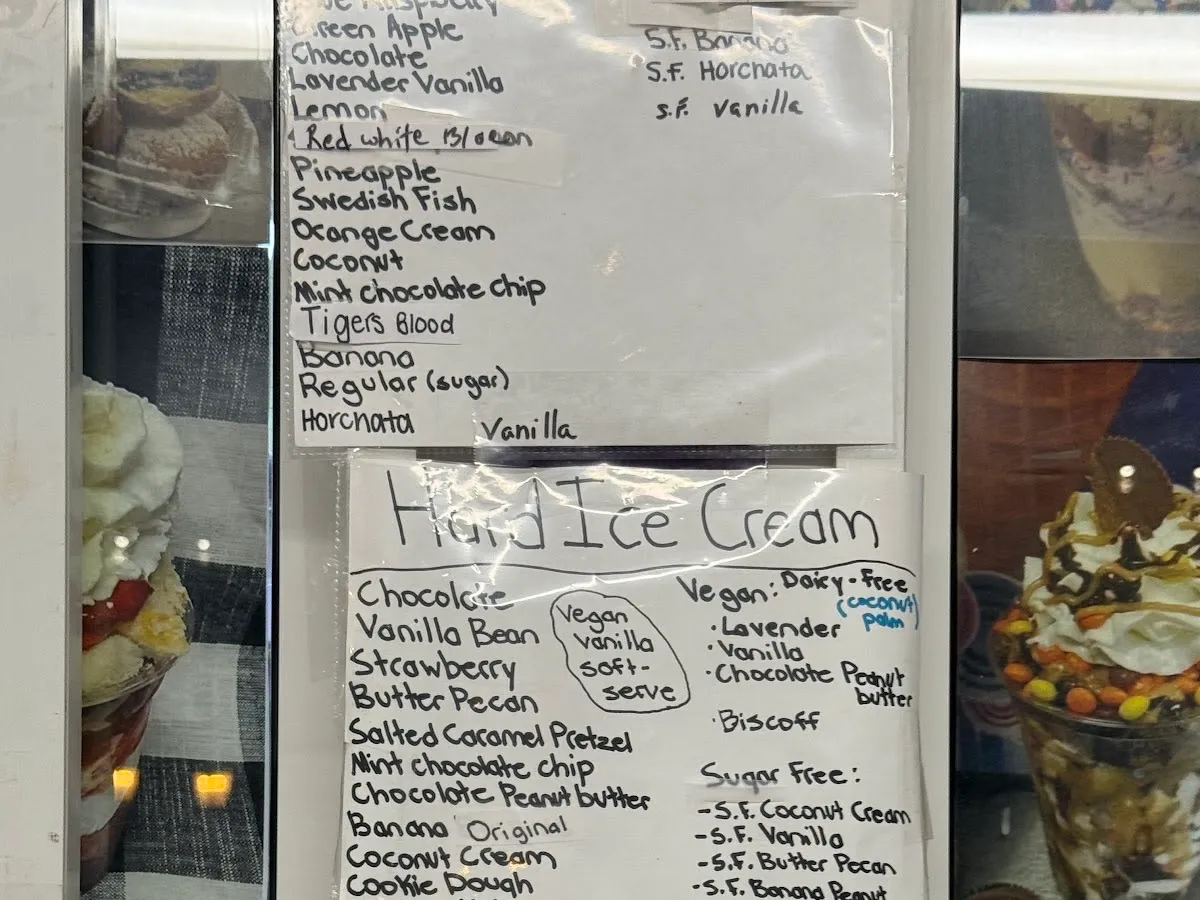 Green Apple
Chocolate
Lavender Vanilla
Lemon
Red white Blocon
Pineapple
Swedish Fish
Orange Cream
Coconut
Mint chocolate chip
Tigers Blood
Banana
Regular (sugar)
Horchata
Vanilla
S.F. Banana
S.F. Horchata
S.F. Vanilla
Hard Ice Cream
Chocolate
Vanilla Bean
Strawberry
Butter Pecan
Salted Caramel Pretzel
Mint chocolate chip
Chocolate Peanut butter
Banana Original
Coconut Cream
Cookie Dough
Vegan
vanilla
soft-
serve
Vegan: Dairy-Free
(coconut
palm)
·Lavender
·Vanilla
·Chocolate Peanut
butter
·Biscoff
Sugar Free:
-S.F. Coconut Cream
-S.F. Vanilla
-S.F. Butter Pecan
-S.F. Banana Peanut